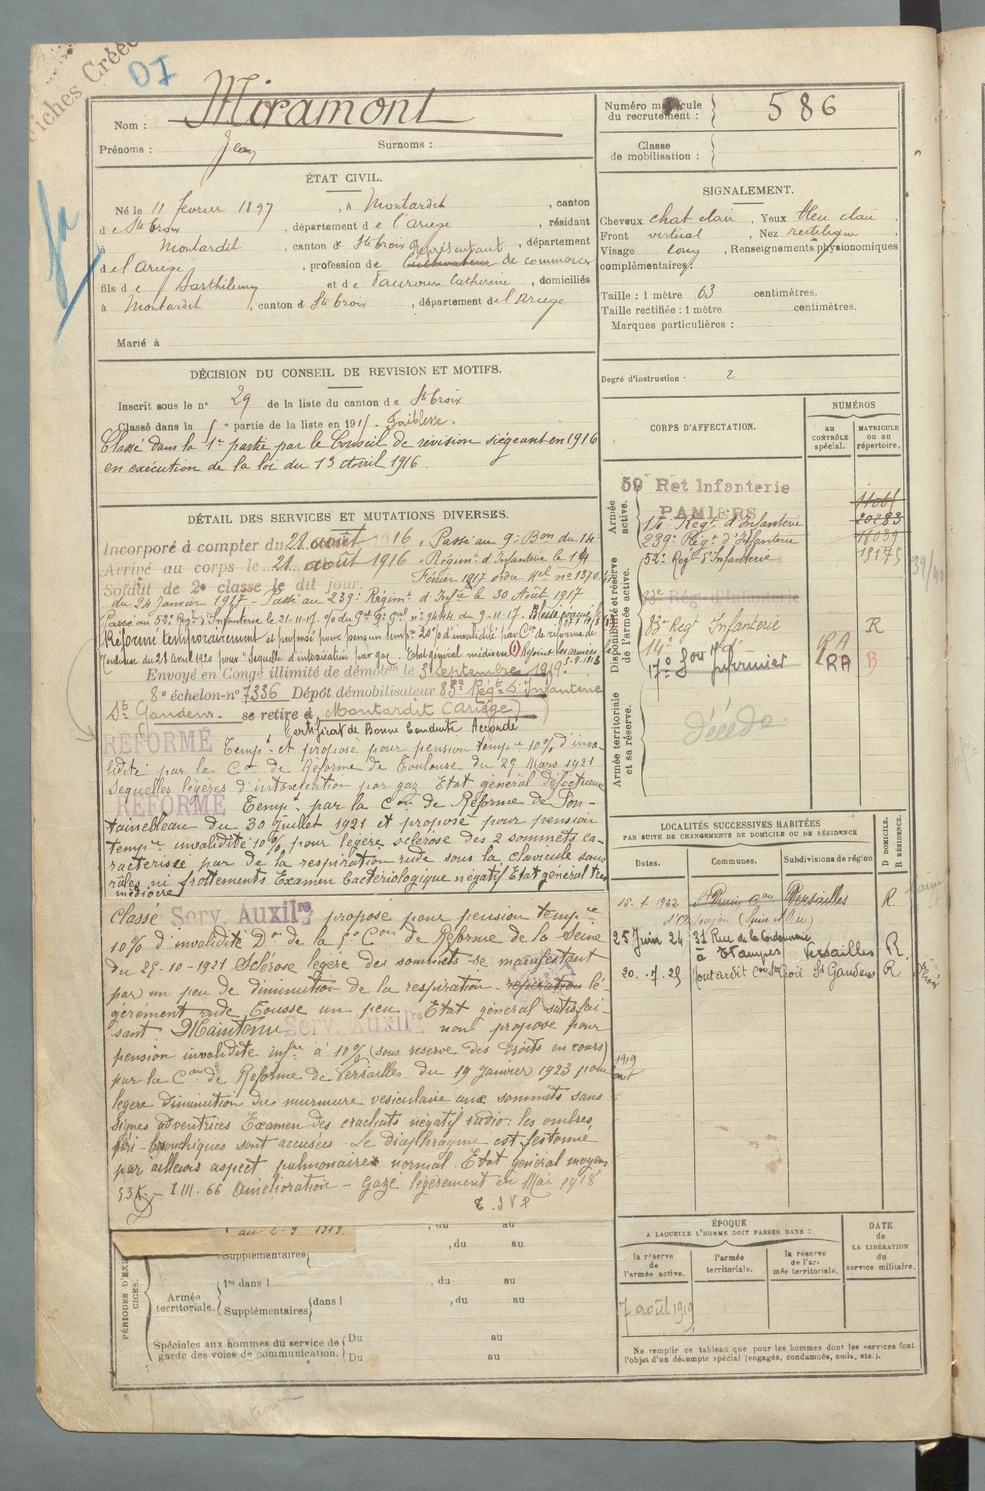 Fiches Créée
DI
Nom : Miramont
Prénoms : Jean Surnoms :
Numéro matricule du recrutement : 586
Classe de mobilisation :
ÉTAT CIVIL.
Né le 11 février 1897, à Montardit, canton
de Ste Croix, département de l'Ariège, résidant
à Montardit, canton de Ste Croix, département
de l'Ariège, profession de Cultivateur Représentant de commerce
fils de Barthélemy et de Vauroux Catherine, domiciliés
à Montardit, canton de Ste Croix, département de l'Ariège
Marié à
SIGNALEMENT.
Cheveux chat clair, Yeux bleu clair,
Front vertical, Nez rectiligne
Visage long, Renseignements physionomiques
complémentaires :
Taille : 1 mètre 63 centimètres.
Taille rectifiée : 1 mètre centimètres.
Marques particulières :
Degré d'instruction : 2
DÉCISION DU CONSEIL DE REVISION ET MOTIFS.
Inscrit sous le n° 29 de la liste du canton de Ste Croix
Classé dans la 5e partie de la liste en 191 . Faiblesse.
Classé dans la 1re partie par le Conseil de révision siégeant en 1916
en exécution de la loi du 13 Avril 1916.
DÉTAIL DES SERVICES ET MUTATIONS DIVERSES.
Incorporé à compter du 28 août 1916, Passé au 9e Bon du 14e
Arrivé au corps le 28 août 1916. Régimt d'Infanterie le 14
Soldat de 2e classe le dit jour. Février 1917 ordre Mel no 1370
du 24 janvier 1917 - Passé au 239e Régimt d'Infie le 30 Août 1917
Passé au 52e Regt d'Infanterie le 21-11-17. du Gal n° 9444 du 9-11-17.
Réformé temporairement et proposé pour pension tempre 20% d'invalidité par Con de réforme de
Toulouse du 28 Avril 1920 pour "Sequelle d'intoxication par gaz. Etat général médiocre (1)
Envoyé en Congé illimité de démobon le 3 Septembre 1919.
8e échelon-n° 7336 Dépôt démobilisateur 83e Régt d'Infanterie
St Gaudens. se retire à Montardit (Ariège)
Certificat de Bonne Conduite Accordé
RÉFORMÉ Tempt et proposé pour pension tempre 10% d'inva-
lidité par la Con de Réforme de Toulouse du 29 Mars 1921
Sequelles légères d'intoxication par gaz Etat général défectueux
RÉFORMÉ Tempt par la Con de Réforme de Fon-
tainebleau du 30 Juillet 1921 et proposé pour pension
tempre invalidité 10% pour légère sclérose des 2 sommets ca-
racterisée par de la respiration rude sous la clavicule sans
râles ni frottements Examen bactériologique négatif Etat général très
médiocre
Classé Serv. Auxilre proposé pour pension tempre
10% d'invalidité Don de la Con de Réforme de la Seine
du 25-10-1921 Sclérose légère des sommets se manifestant
par un peu de diminution de la respiration - respiration lé-
gèrement rude, Tousse un peu. Etat général satisfai-
sant Maintenu Serv. Auxilre non proposé pour
pension invalidité infre à 10% (sous réserve des droits en cours)
par la Con de Réforme de Versailles du 19 Janvier 1923 pour
légère diminution du murmure vésiculaire aux sommets sans
signes adventices Examen des crachats négatif radio : les ombres
péri-bronchiques sont accusées. Le diaphragme est festonné
par ailleurs aspect pulmonaire normal. Etat général moyen
53K - 1m.66 Amélioration - Gazé légèrement en Mai 1918
CORPS D'AFFECTATION.
NUMÉROS
au CONTRÔLE spécial.
MATRICULE ou au répertoire.
Armée active.
59 Ret Infanterie
PAMIERS
14e Régt d'Infanterie 20283
239e Régt d'Infanterie
52e Regt d'Infanterie
Disponibilité et réserve de l'armée active.
83e Rég. d'Infanterie
83e Regt Infanterie R
14e RA
17e Son Infirmier RA B
Armée territoriale et sa réserve.
Décédé
LOCALITÉS SUCCESSIVES HABITÉES
PAR SUITE DE CHANGEMENTS DE DOMICILE OU DE RÉSIDENCE
Dates. Communes. Subdivisions de région
D DOMICILE. R RÉSIDENCE.
15. 1. 1922 Versailles R.
25 Juin 24 31 Rue de la Cordonnerie
à Etampes Versailles R
20. .7. 25 Montardit Con Ste Croix St Gaudens R
ÉPOQUE
A LAQUELLE L'HOMME DOIT PASSER DANS :
la réserve de l'armée active.
l'armée territoriale.
la réserve de l'armée territoriale.
DATE de LA LIBÉRATION du service militaire.
7 août 1919
PÉRIODES D'EXERCICES.
au 2-9-1919.
Supplémentaires , du au
Armée territoriale.
1re dans l , du au
Supplémentaires dans l , du au
Spéciales aux hommes du service de garde des voies de communication.
Du au
Du au
Ne remplir ce tableau que pour les hommes dont les services font
l'objet d'un décompte spécial (engagés, condamnés, omis, etc.).